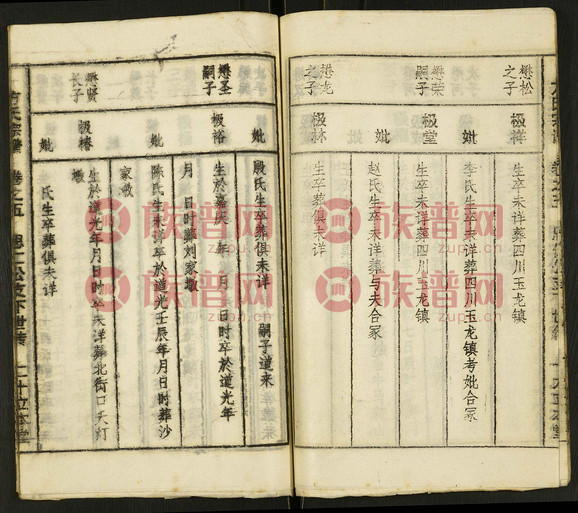 懋松之子
極祥
生卒未详葬四川玉龙镇
妣
李氏生卒未详葬四川玉龙镇考妣合冢
懋荣嗣子
極堂
生卒未详葬四川玉龙镇
妣
赵氏生卒未详葬与夫合冢
懋龙之子
極林
生卒葬俱未详
妣
殷氏生卒葬俱未详
嗣子道来
懋圣嗣子
極裕
生於嘉庆年 月 日时卒於道光年
月 日时葬刘家墩
妣
陈氏生未详卒於道光壬辰年月日时葬沙
家墩
懋贤长子
極椿
生於道光年月日时卒未详葬北街口天灯
墩
妣
氏生卒葬俱未详
方氏宗谱
卷之五
族谱网
zupu.cn